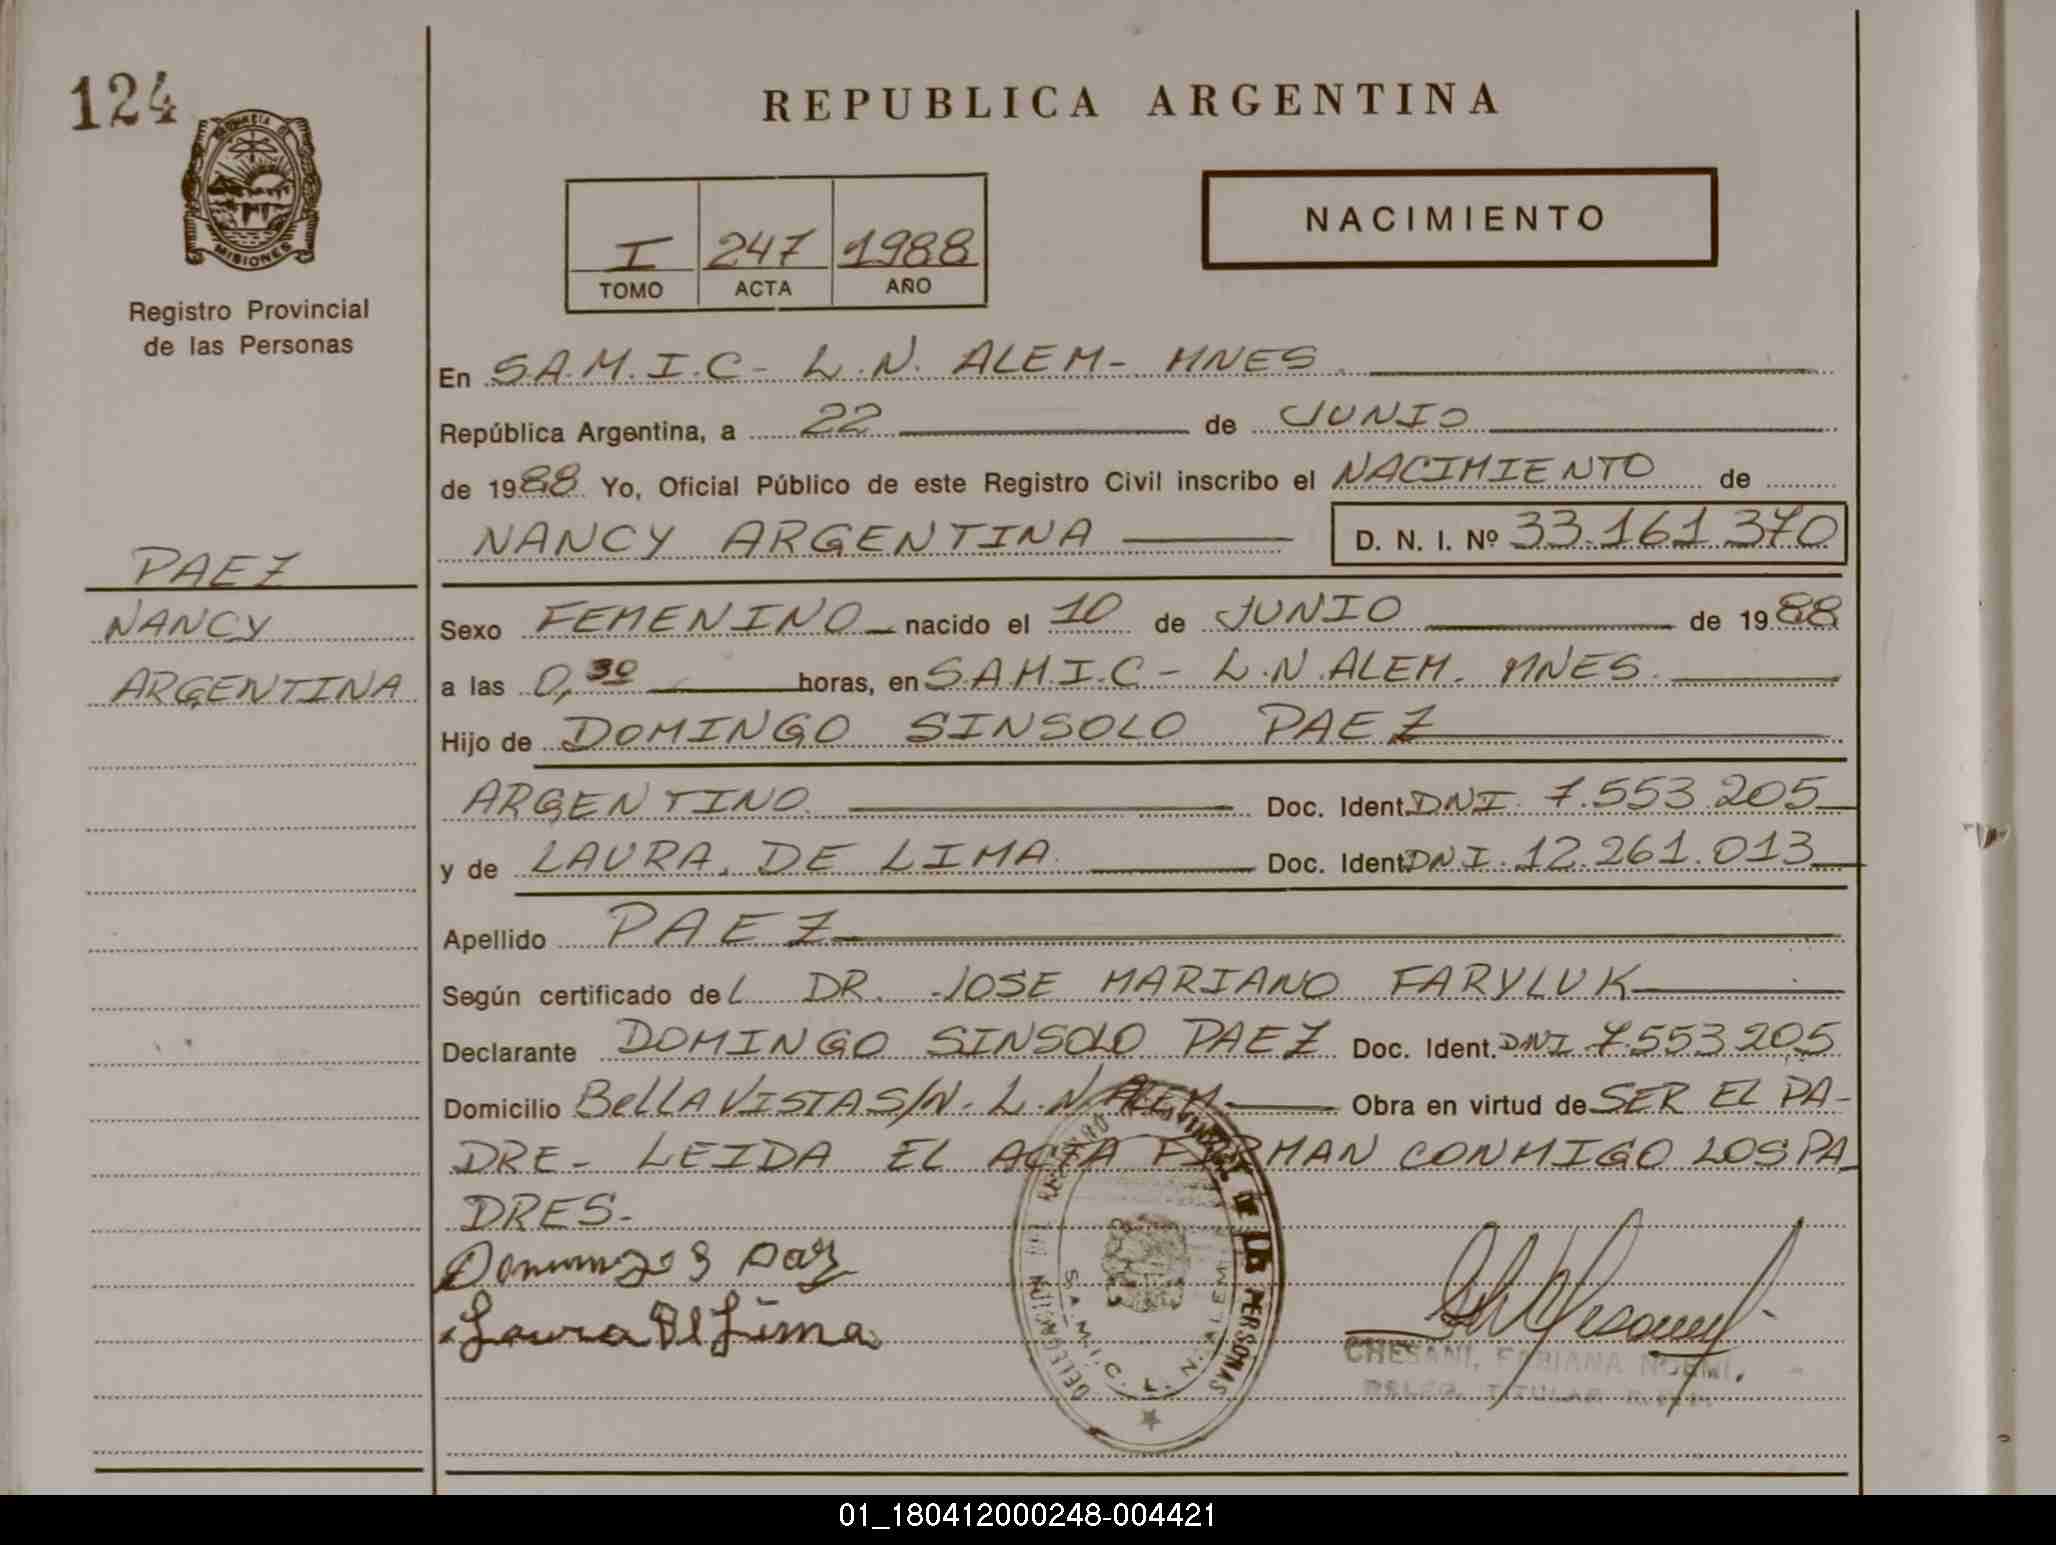 124
PROVINCIA DE
MISIONES
Registro Provincial
de las Personas
PAEZ
NANCY
ARGENTINA
REPUBLICA ARGENTINA
I 247 1988
TOMO ACTA AÑO
NACIMIENTO
En S.A.M.I.C - L.N. ALEM - MNES.
República Argentina, a 22 de JUNIO
de 1988 Yo, Oficial Público de este Registro Civil inscribo el NACIMIENTO de
NANCY ARGENTINA D. N. I. Nº 33.161.370
Sexo FEMENINO nacido el 10 de JUNIO de 1988
a las 0,30 horas, en S.A.M.I.C - L.N. ALEM. MNES.
Hijo de DOMINGO SINSOLO PAEZ
ARGENTINO. Doc. Ident. DNI. 7.553.205
y de LAURA. DE LIMA. Doc. Ident. DNI. 12.261.013
Apellido PAEZ
Según certificado del DR. JOSE MARIANO FARYLUK
Declarante DOMINGO SINSOLO PAEZ Doc. Ident. DNI. 7.553.205
Domicilio BELLA VISTA S/N. L.N. ALEM Obra en virtud de SER EL PA-
DRE - LEIDA EL ACTA FIRMAN CONMIGO LOS PA
DRES-
Domingo S Paz
Laura De Lima
DELEGACION DEL REGISTRO PROVINCIAL DE LAS PERSONAS
S.A.M.I.C. L.N. ALEM
CHESANI, FABIANA NOEMI.
DELEG. TITULAR
01_180412000248-004421